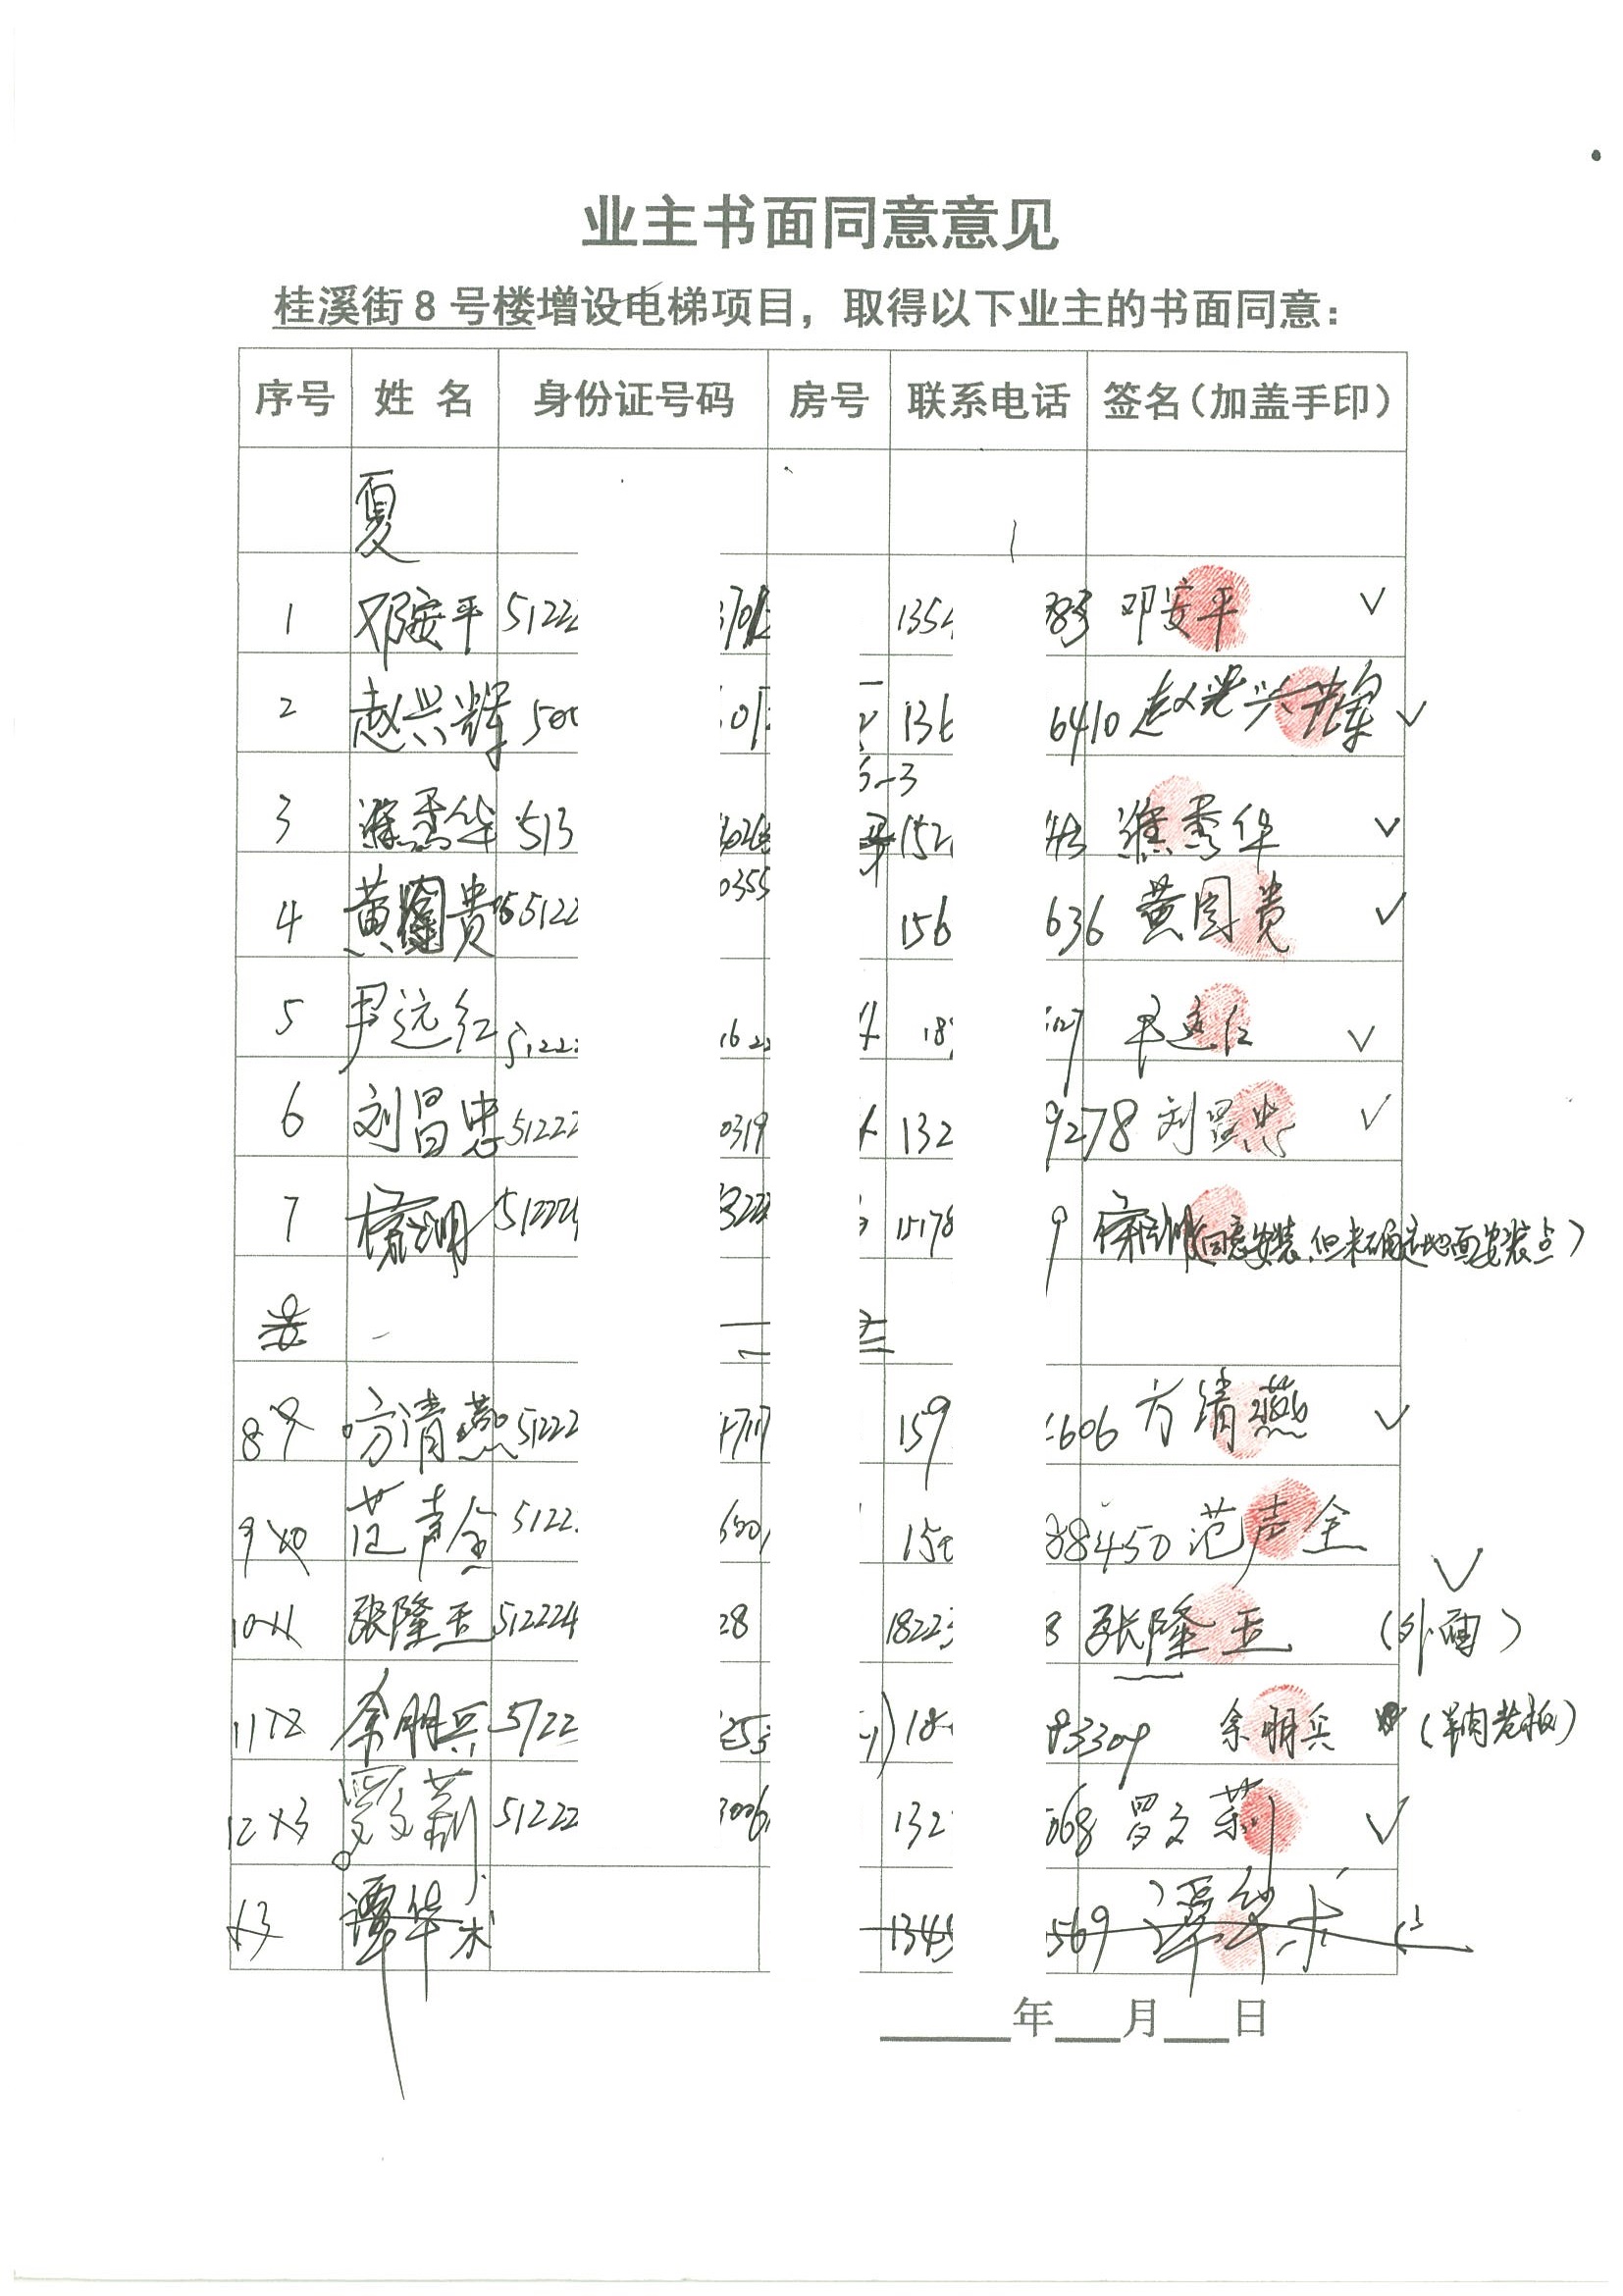 业主书面同意意见
桂溪街8号楼增设电梯项目，取得以下业主的书面同意：
序号 姓名 身份证号码 房号 联系电话 签名（加盖手印）
夏
1 邓安平 51222 1354 383 邓安平 √
2 赵兴辉 500 136 6410 赵兴辉 √
3 秀华 513 -3 152 秀华 √
4 黄国贵 5122 0355 156 636 黄国贵 √
5 尹远红 51222 1622 18 127 尹远红 √
6 刘昌忠 51222 0319 132 9278 刘昌忠 √
7 512224 3222 15178 9 （同意安装，但未确定地面安装点）
8 方清燕 51222 159 606 方清燕 √
9 范声全 5122 150 88450 范声全 √
10 张隆玉 512224 28 18223 3 张隆玉 （外面）
11 余明兵 5122 253 18 93304 余明兵 （羊肉老板）
12 罗文莉 51222 3006 132 068 罗文莉 √
13 谭华术 1345 569 谭华术
年 月 日